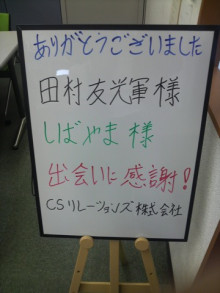 ありがとうございました
田村友光輝様
しばやま様
出会いに感謝!
CSリレーションズ株式会社